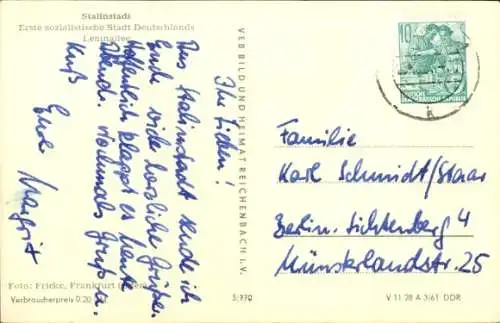 Stalinstadt
Erste sozialistische Stadt Deutschlands
Leninallee
Ihr Lieben!
Aus Stalinstadt sende ich
Euch viele herzliche Grüße.
Hoffentlich klappt es heute
Abend. Nochmals Gruß u.
Kuß
Eure Margrit
Foto: Fricke, Frankfurt (Oder)
Verbraucherpreis 0.20
VEB BILD UND HEIMAT REICHENBACH I. V.
5/970
10
DEUTSCHE
DEMOKRATISCHE REPUBLIK
Familie
Karl Schmidt/Staar
Berlin-Lichtenberg 4
Münsterlandstr. 25
V 11 28 A 3/61 DDR